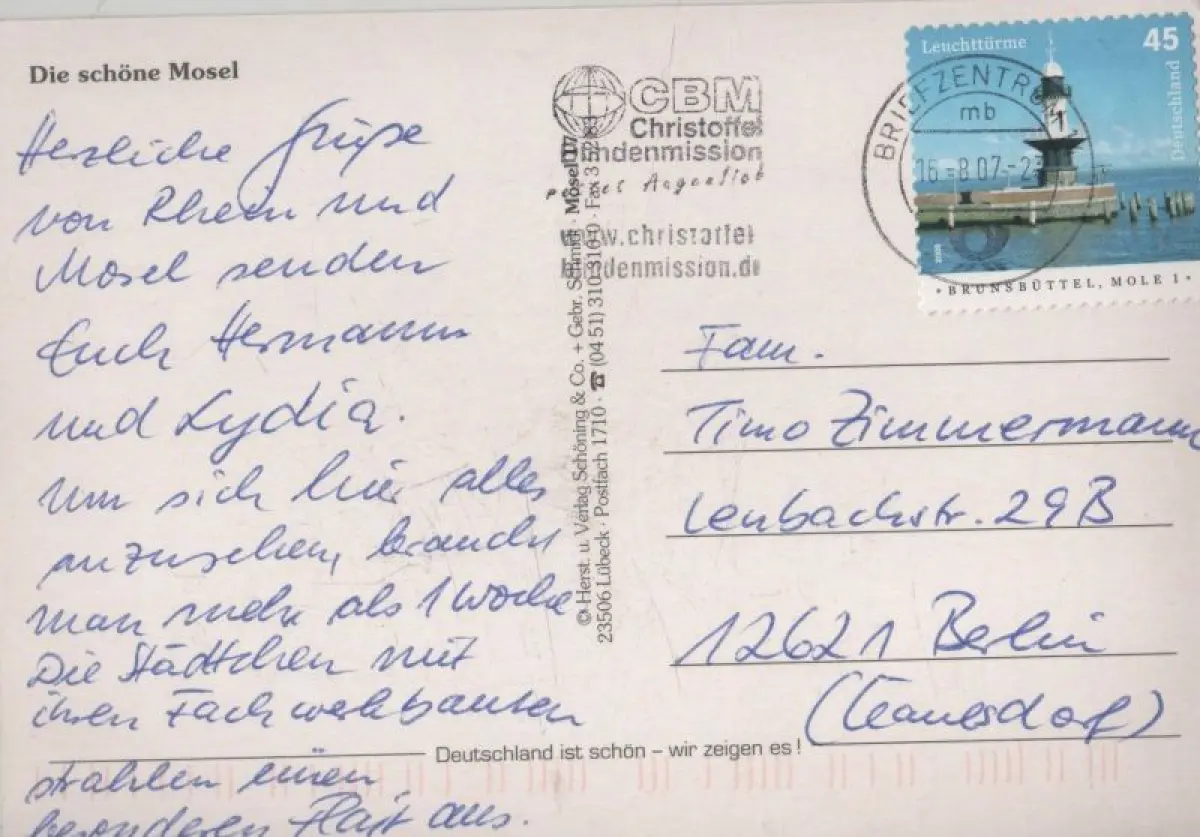 Die schöne Mosel
Herzliche Grüße
von Rhein und
Mosel senden
Euch Hermann
und Lydia.
Um sich hier alles
anzusehen, braucht
man mehr als 1 Woche
Die Städtchen mit
ihren Fachwerkbauten
strahlen einen
besonderen Flair aus.
CBM
Christoffel
indenmission
www.christoffel
blindenmission.de
BRIEFZENTRUM
mb
16.-8.07.-2
Leuchttürme
45
Deutschland
2005
· BRUNSBÜTTEL, MOLE 1 ·
© Herst. u. Verlag Schöning & Co. + Gebr. Schmidt · Mosel 17
23506 Lübeck · Postfach 1710 · ☎ (04 51) 310 310-0 · Fax
Fam.
Timo Zimmermann
Lenbachstr. 29B
12621 Berlin
(Caulsdorf)
Deutschland ist schön – wir zeigen es!